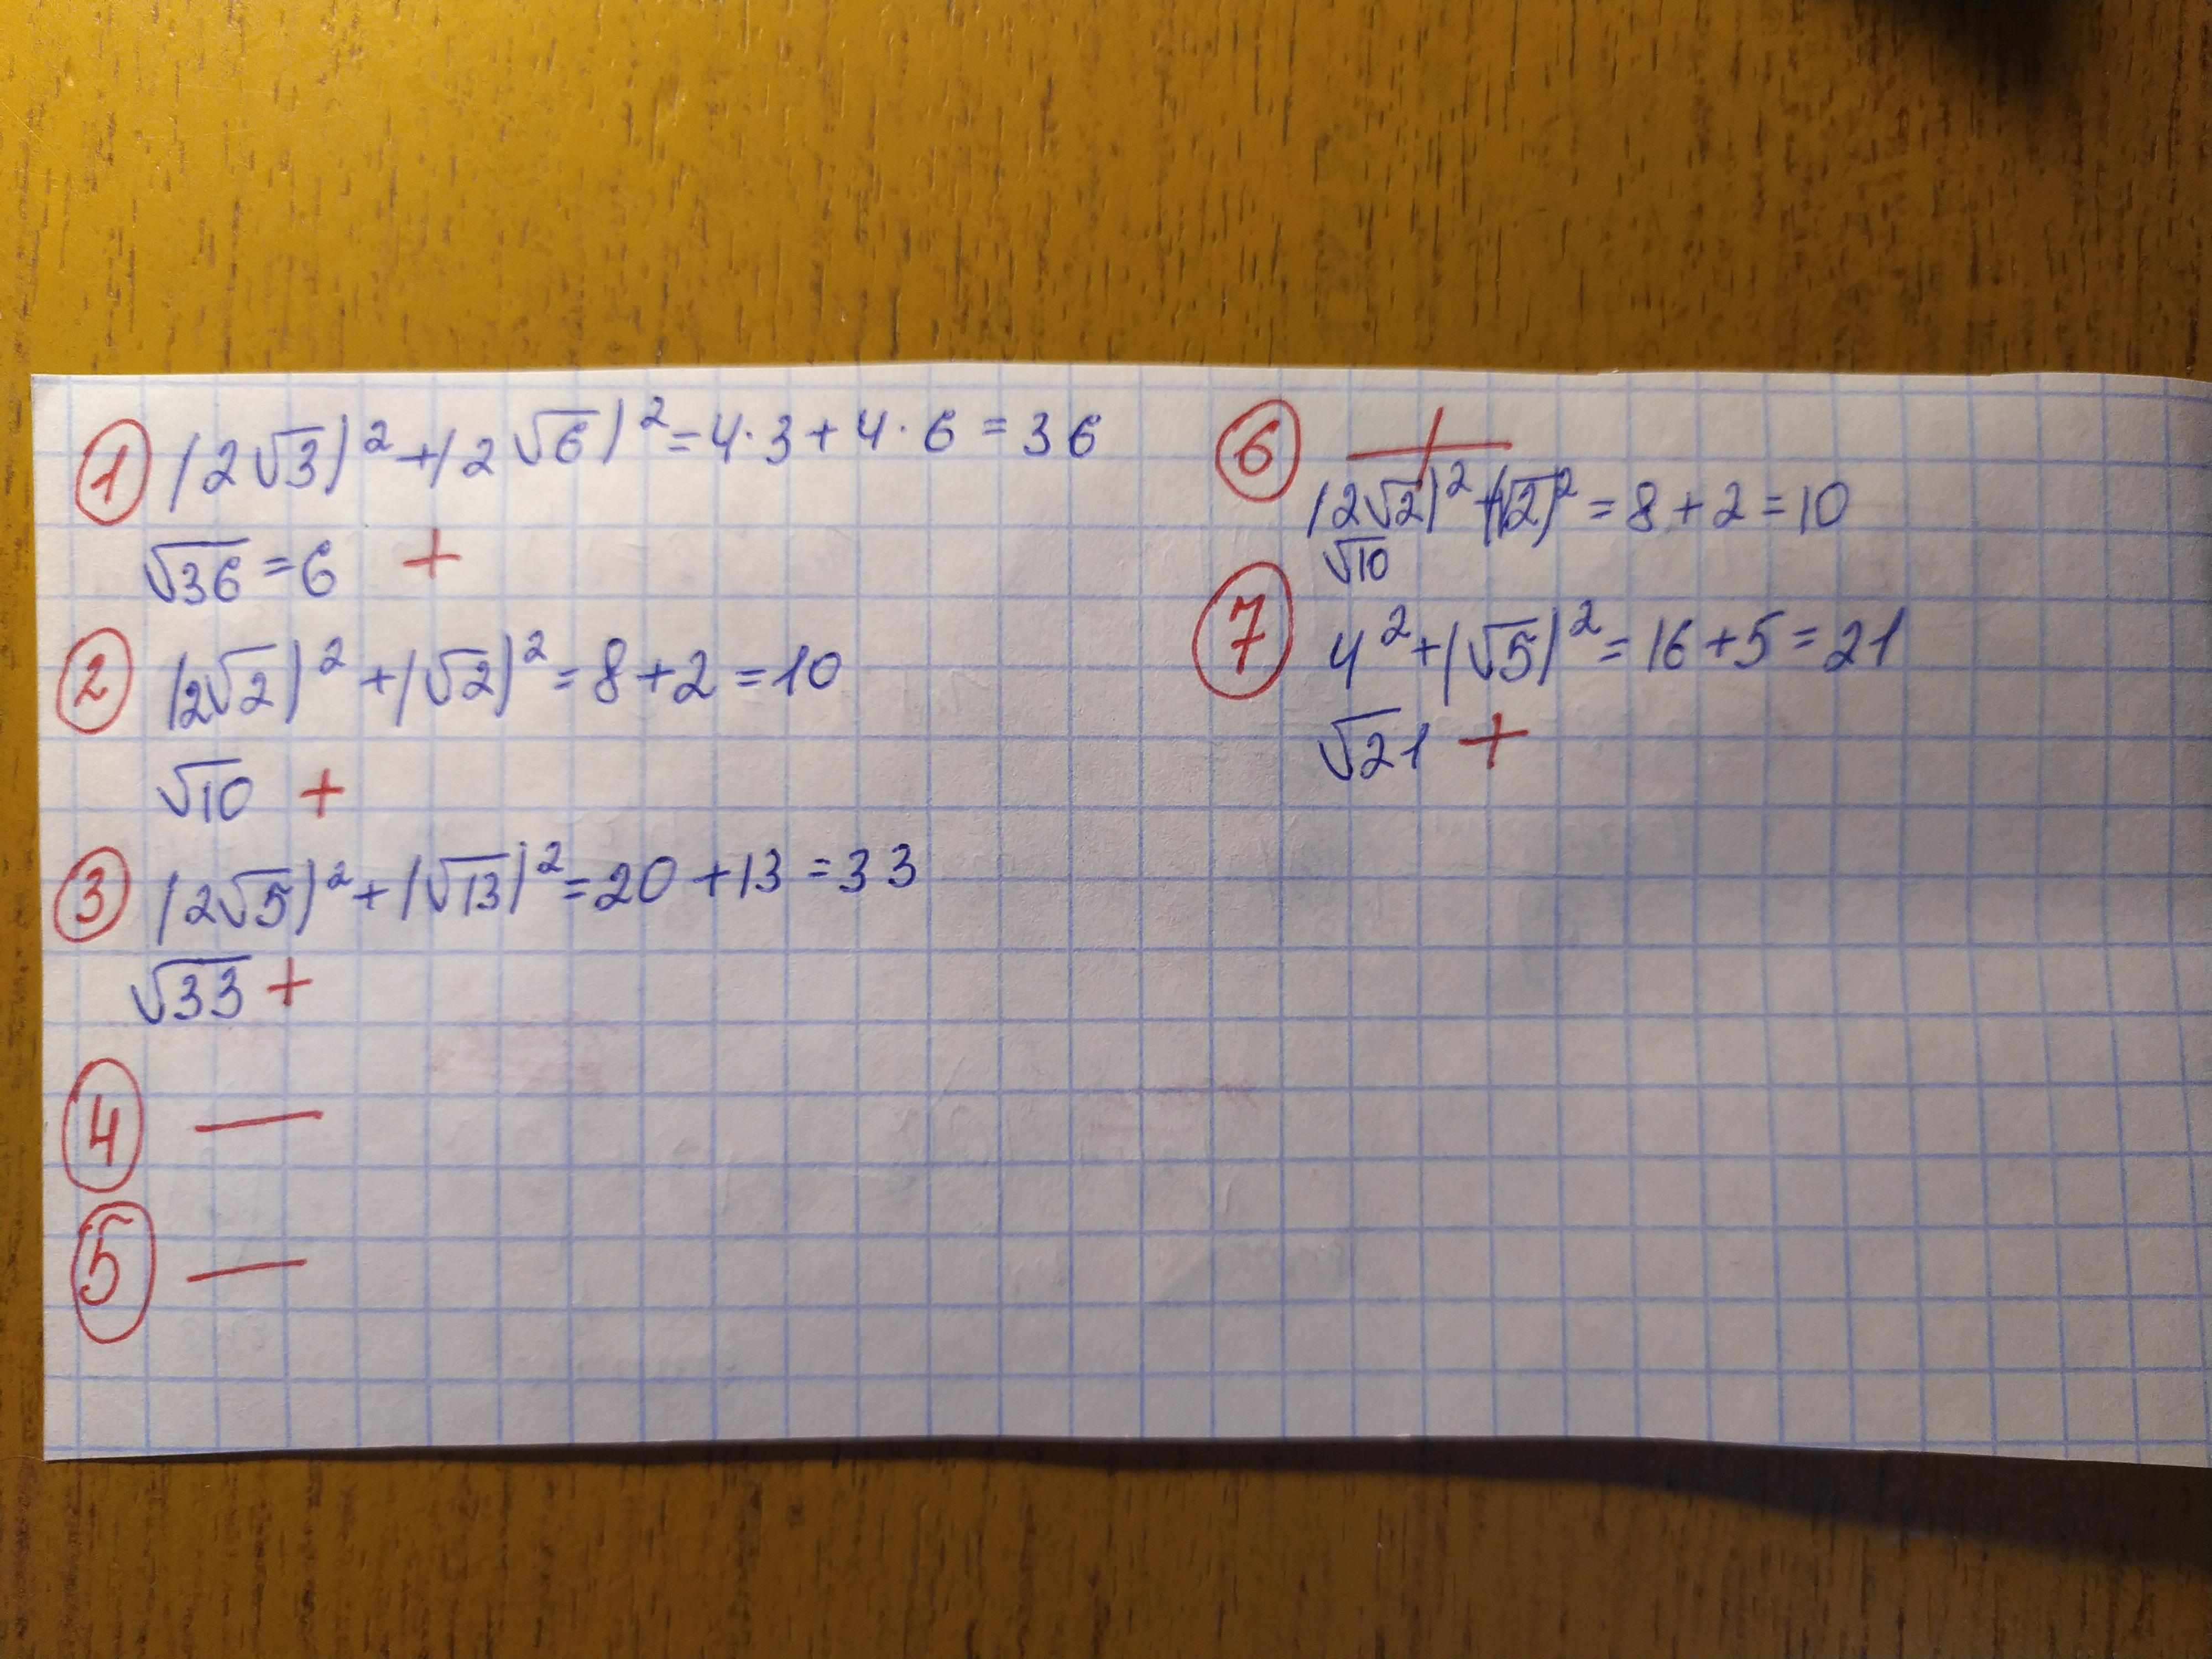 ① (2√3)² + (2√6)² = 4·3 + 4·6 = 36
√36 = 6 +
② (2√2)² + (√2)² = 8 + 2 = 10
√10 +
③ (2√5)² + (√13)² = 20 + 13 = 33
√33 +
④ —
⑤ —
⑥ +
(2√2)² + (√2)² = 8 + 2 = 10
√10
⑦ 4² + (√5)² = 16 + 5 = 21
√21 +